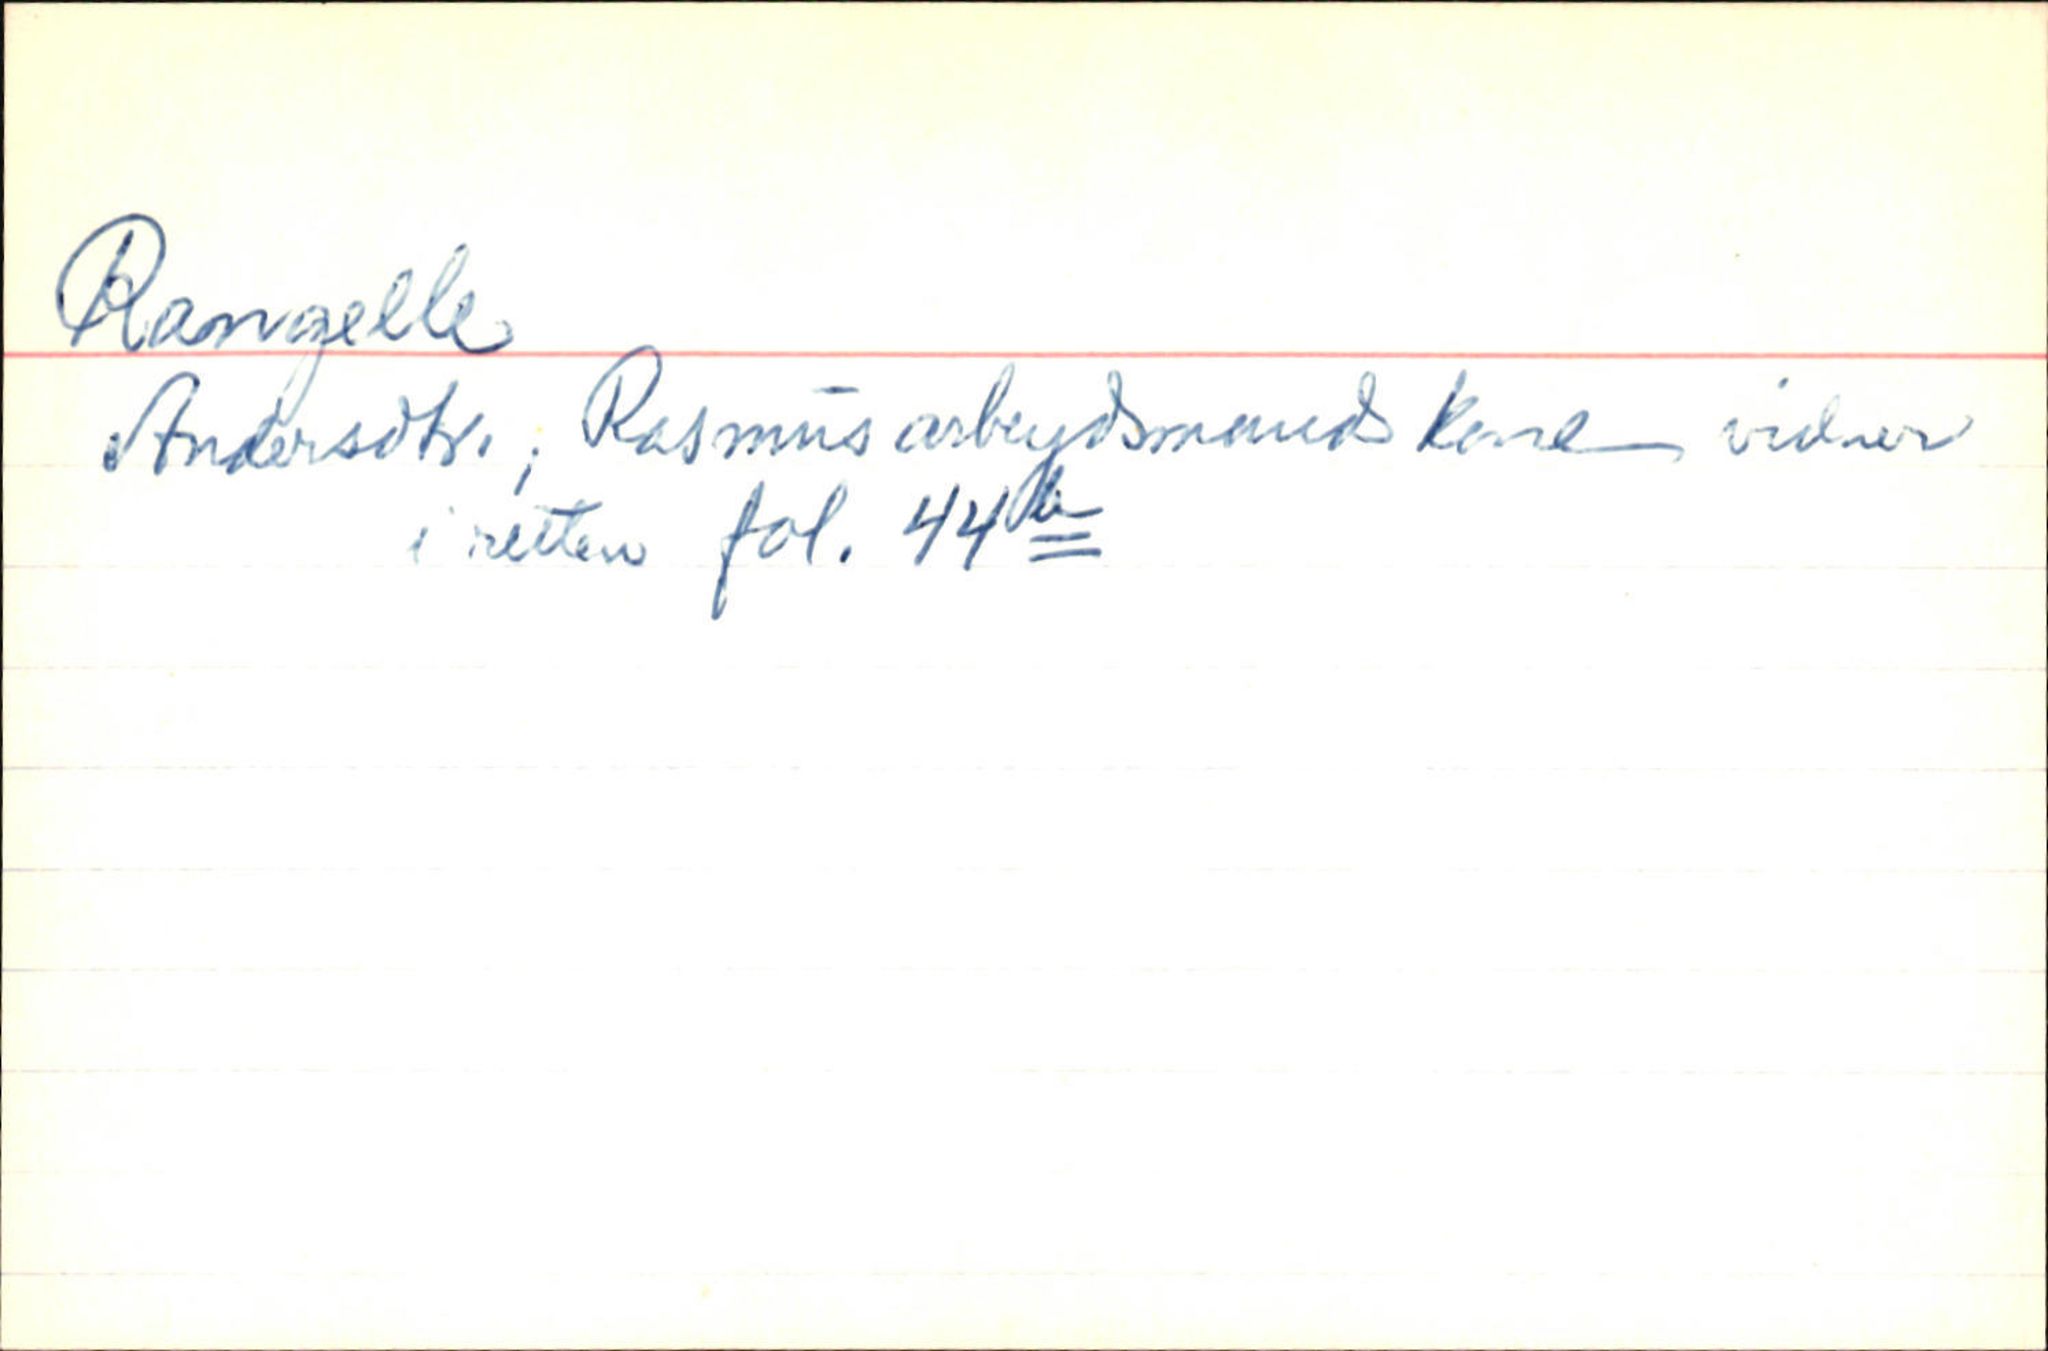 Rangelle
Andersdtr., Rasmus arbeydsmands kone vidner
i retten fol. 44b